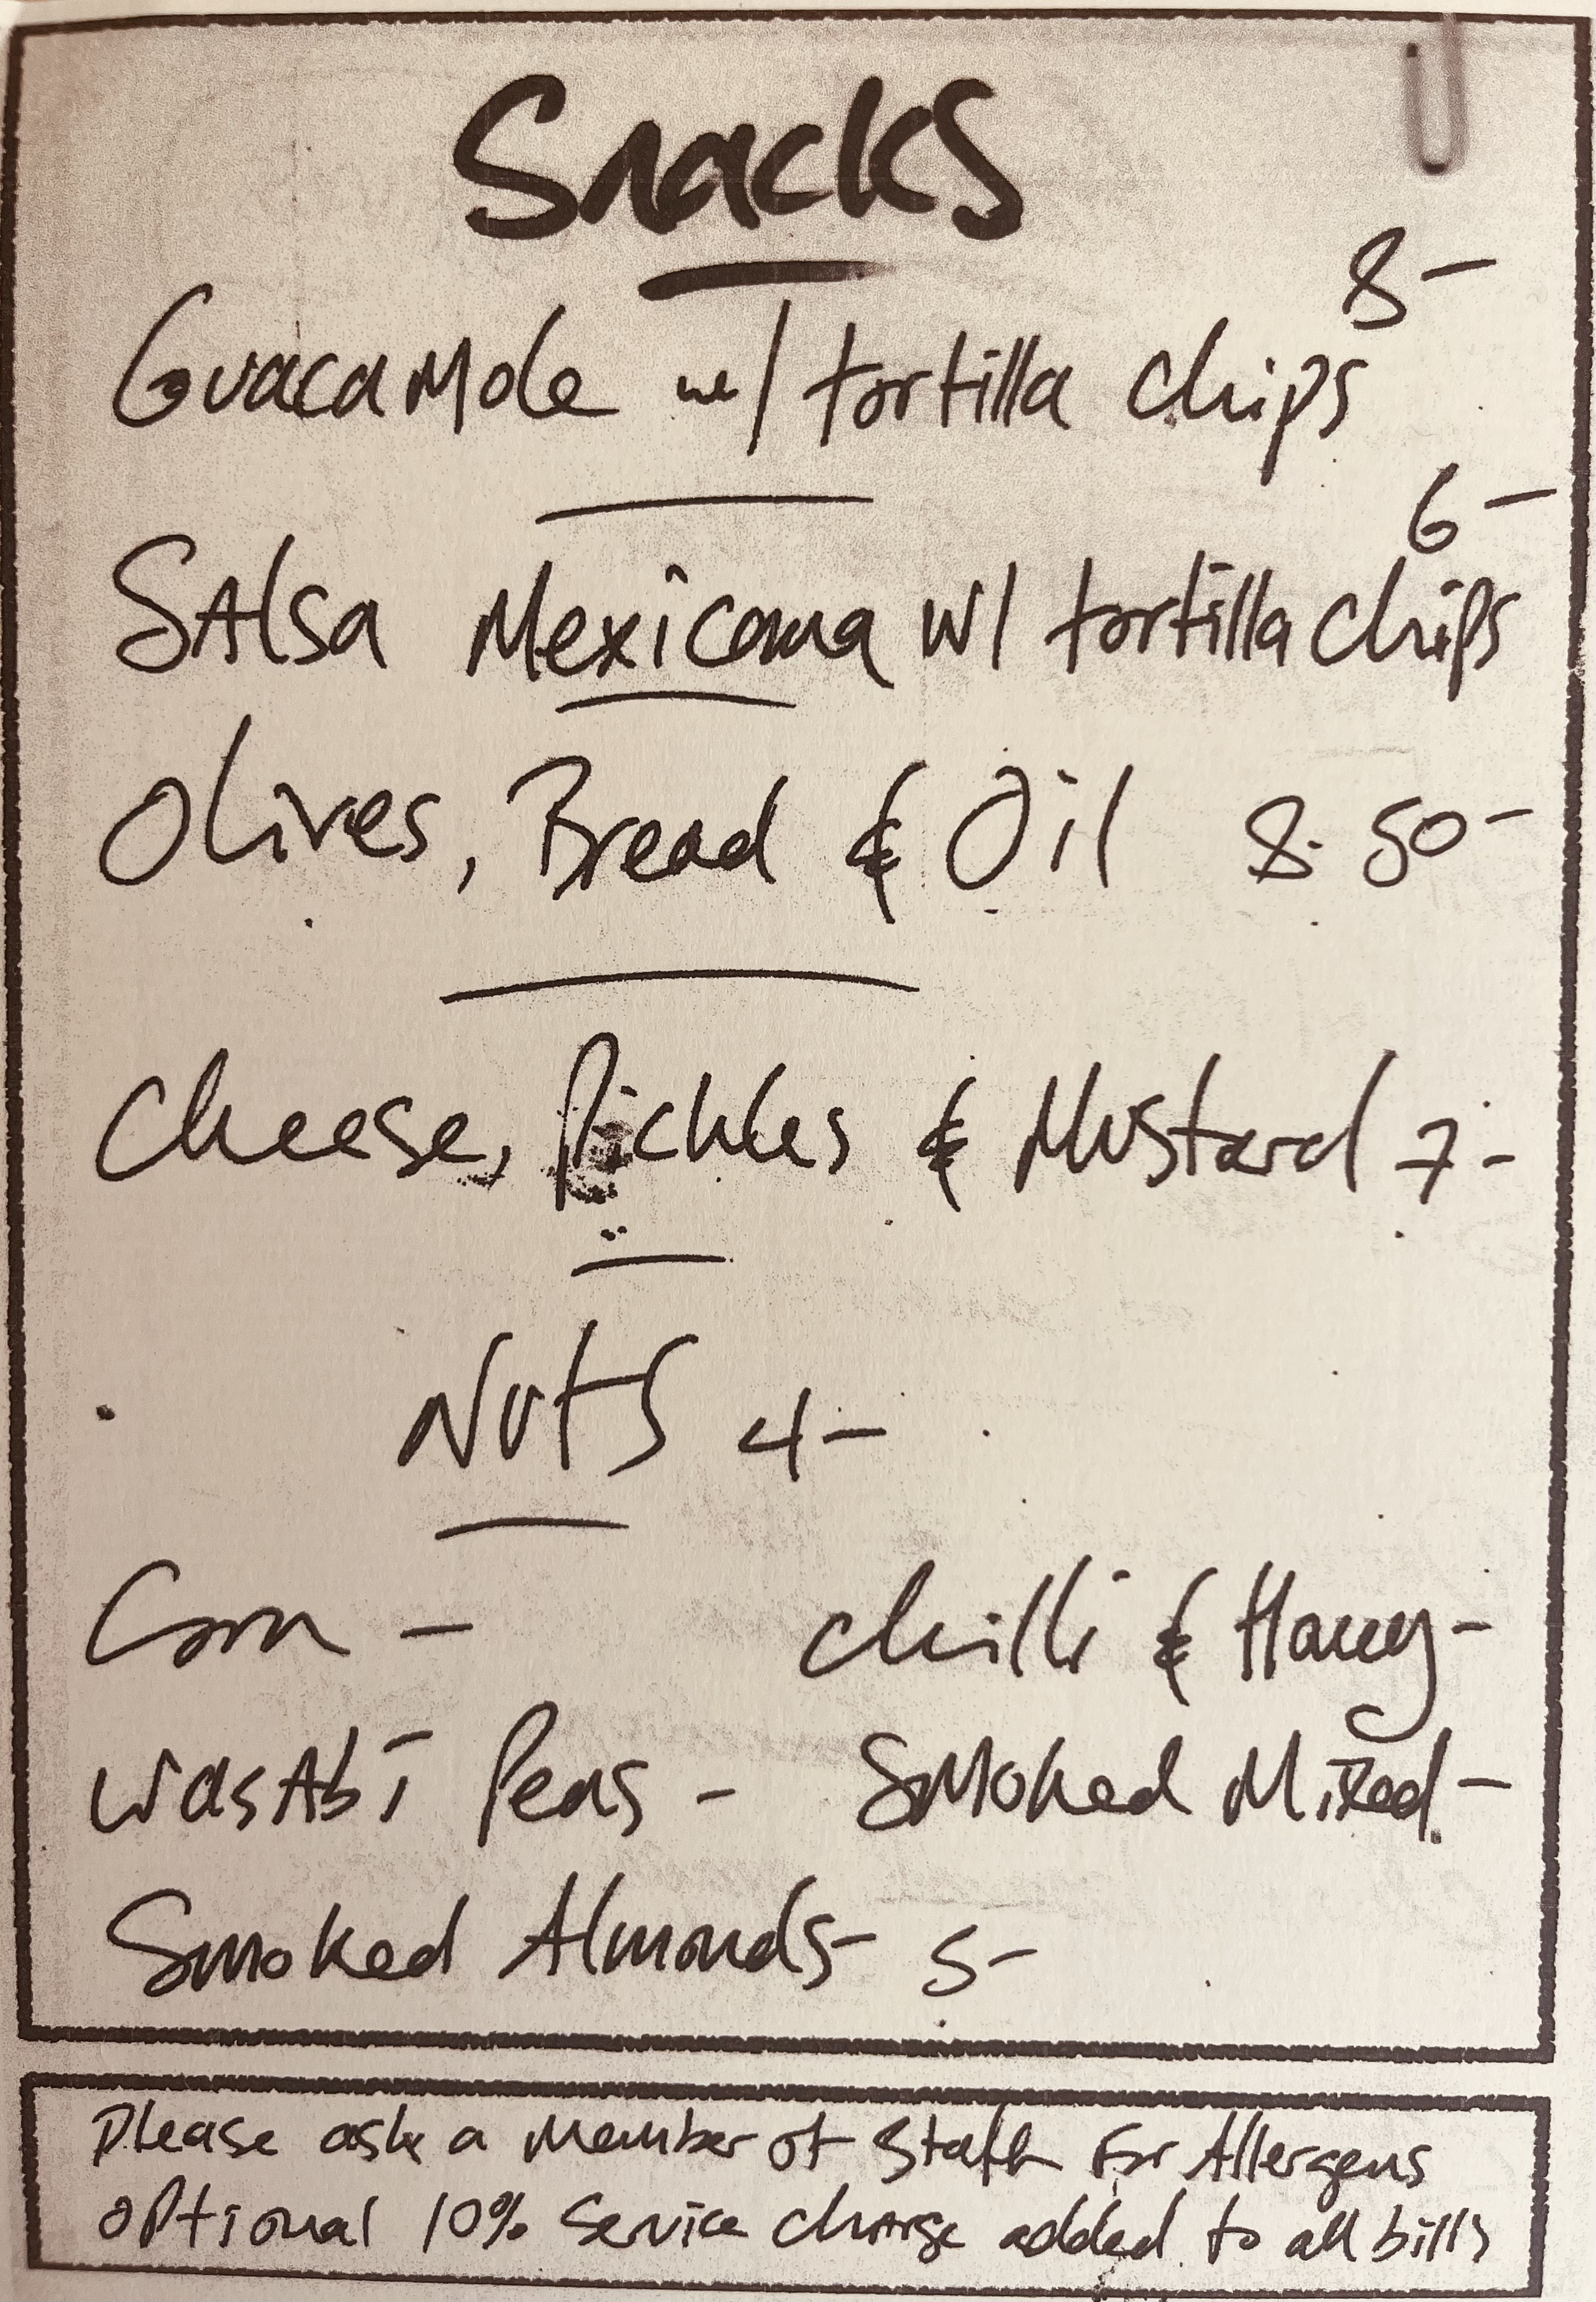 Snacks
8-
Guacamole w/ tortilla chips
6-
Salsa Mexicana w/ tortilla chips
Olives, Bread & Oil 8.50-
Cheese, Pickles & Mustard 7-
Nuts 4-
Corn - Chilli & Honey-
Wasabi Peas - Smoked Mixed-
Smoked Almonds- 5-
Please ask a member of staff for Allergens
Optional 10% Service charge added to all bills